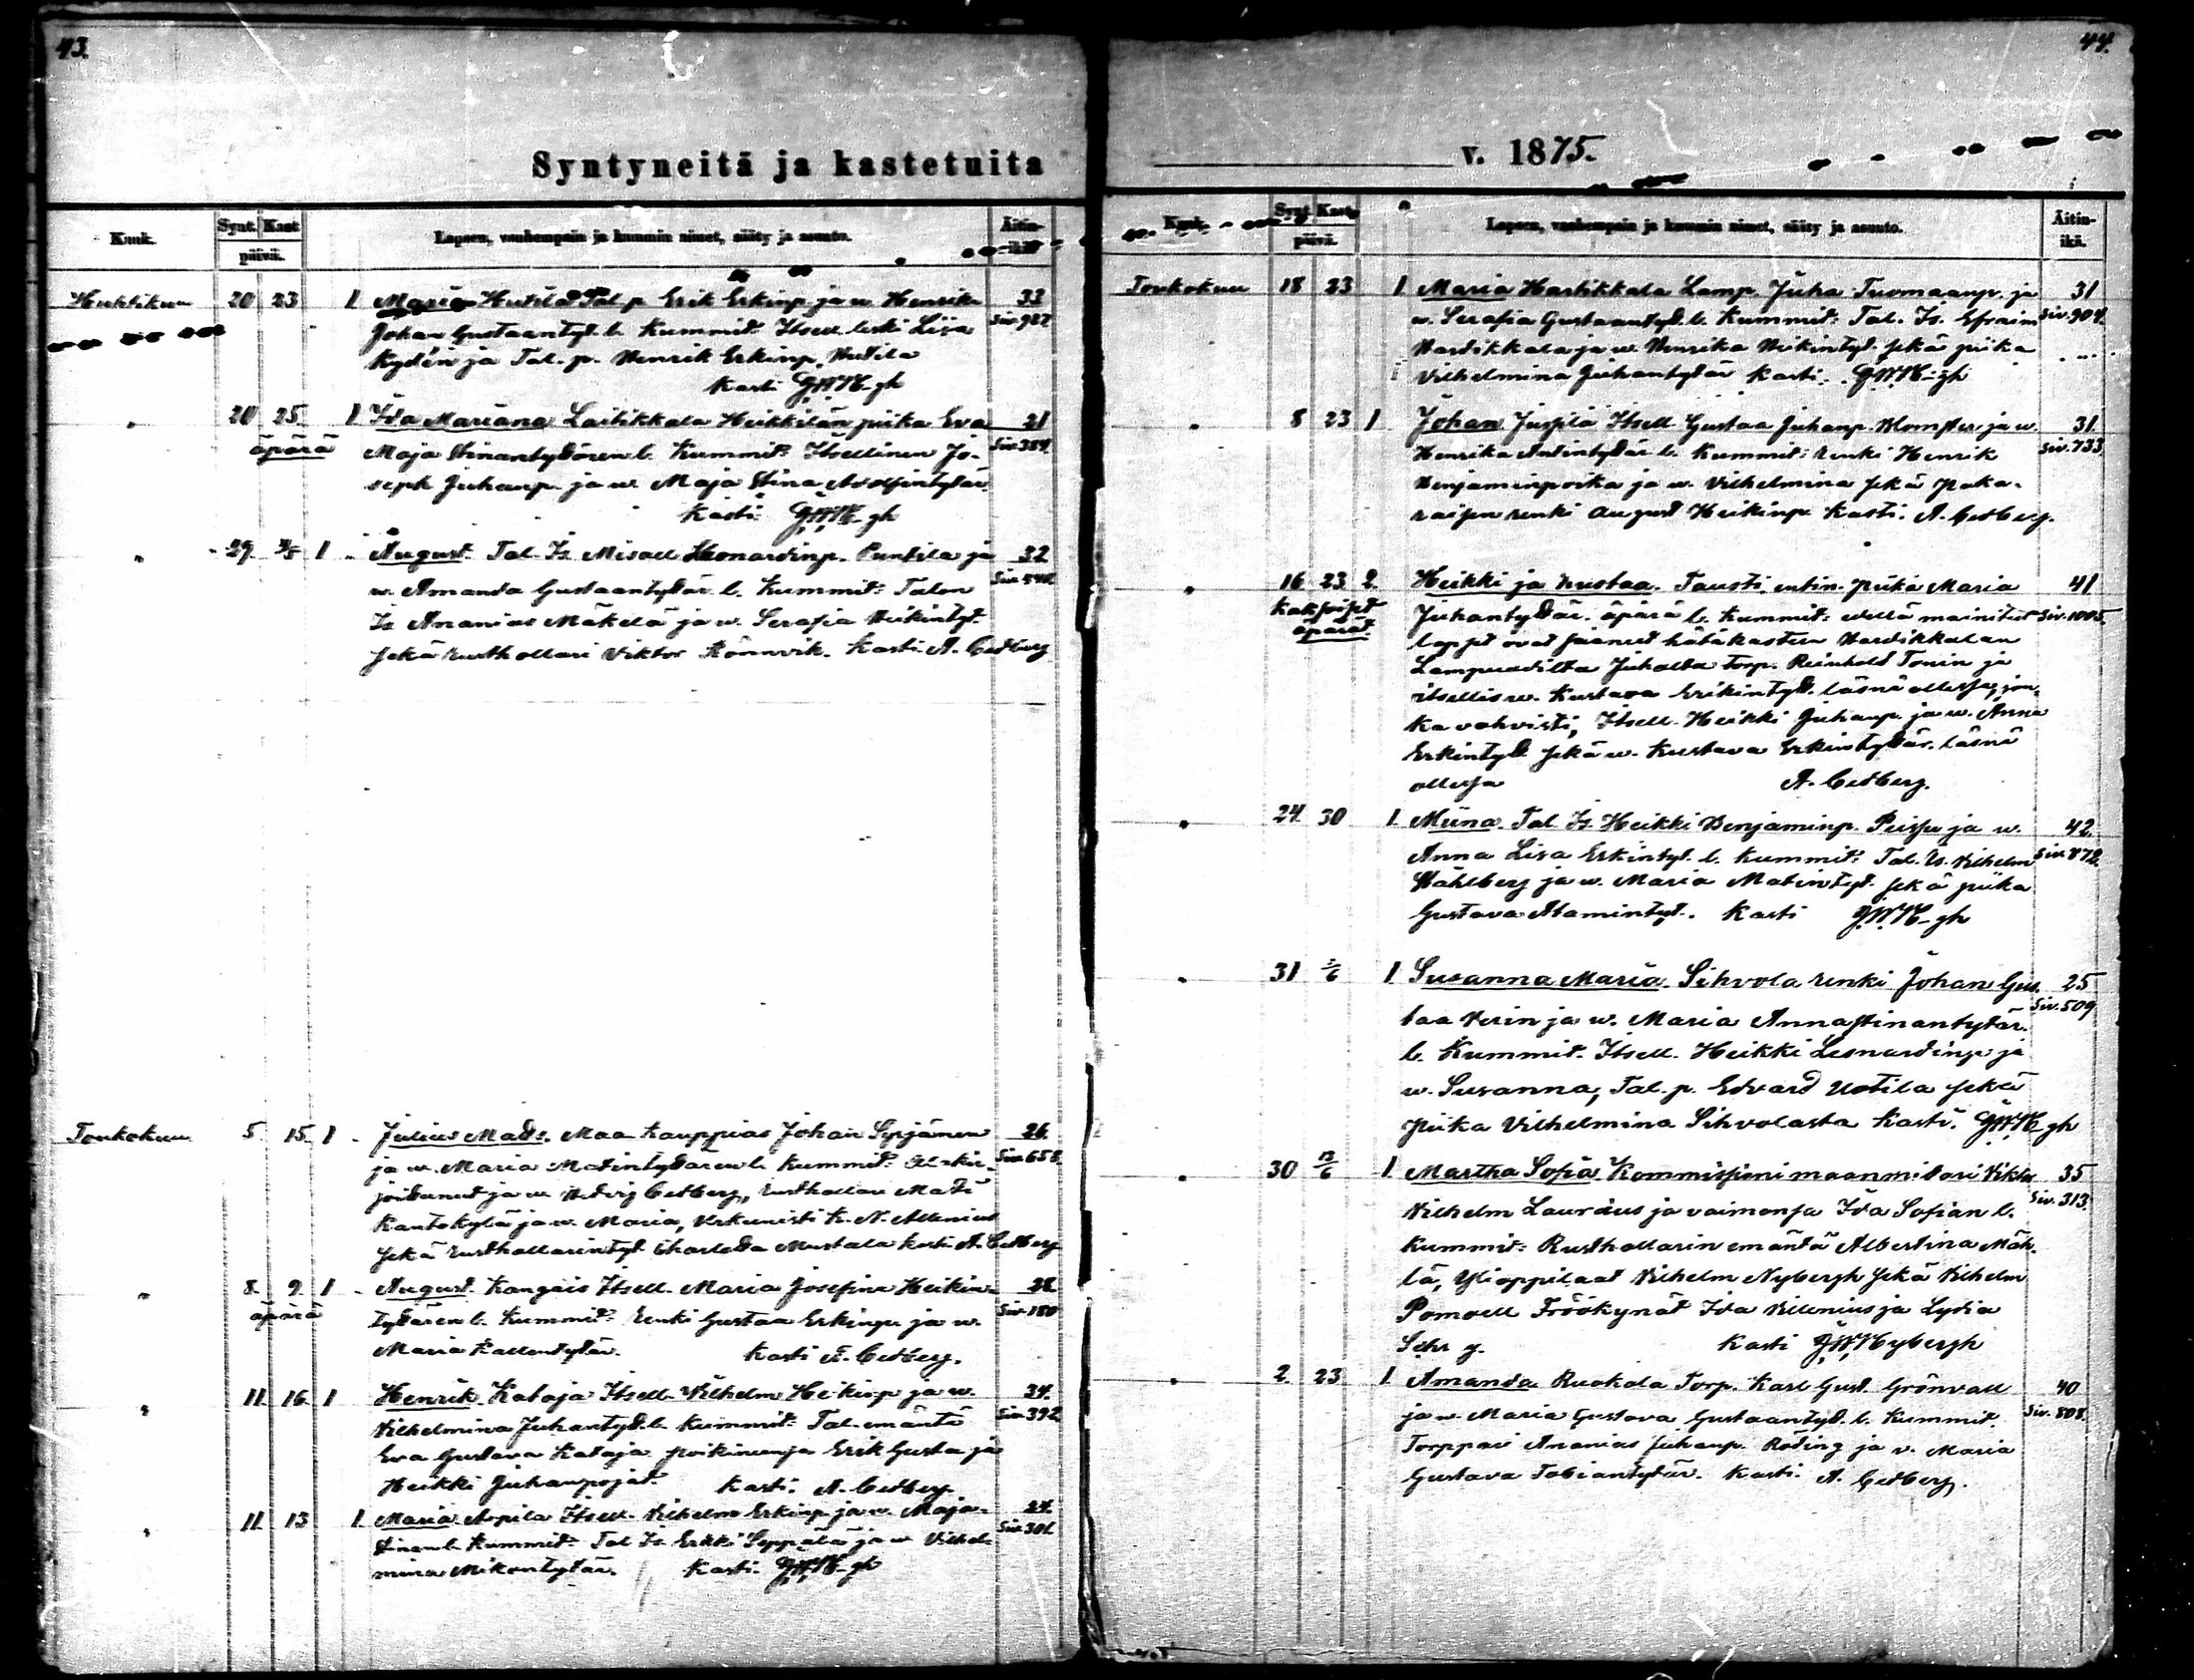 43.
Syntyneitä ja kastetuita
Kuuk. Synt. Kast. päivä. Lapsen, vanhempain ja kummin nimet, sääty ja asunto. Äitin-ikä.
Huhtikuu 20 23 1 Maria Hutila Tal. p. Erik Erkinp. ja w. Henrika 33
Johan Gustaantyt. l. Kummit: Itsell. leski Liisa Siv. 927
Kydén ja Tal. p. Henrik Erkinp. Hutila
Kasti G.W.N-gh
" 20 25. 1 Ida Mariana Laitikkala Heikkilän piika Eva 21
äpärä Maja Stinantyttären l. Kummit: Itsellinen Jo- Siv. 384
seph Juhanp. ja w. Maja Stina Adolfintytär.
Kasti: G.W.N-gh
" 29. 1 August. Tal. Is. Misael Leonardinp. Puntila ja 32
w. Amanda Gustaantytär l. Kummit: Talon
Is. Ananias Mäkelä ja w. Serafia Heikintyt.
sekä rusthollari Viktor Könnvik. Kasti A. Cedberg
Toukokuu 5. 15. 1 Julius Mats. Maa Kauppias Johan Syrjänen 26.
ja w. Maria Matintytären l. Kummit: Siv. 658
ja w. Hedvig Cedberg, rusthollari Matti
Kantokylä ja w. Maria, Urkunisti K. N. Allenius
sekä rusthollarintyt. Charlotta Mustala Kasti A. Cedberg
" 8. 9. 1 August. Kangais Itsell. Maria Josefina Heikin- 28.
äpärä tytären l. Kummit: renki Gustaa Erkinp. ja w. Siv. 180
Maria Kallentytär. Kasti A. Cedberg.
" 11. 16. 1 Henrik Kataja Itsell. Vilhelm Heikinp. ja w. 34.
Vilhelmina Juhantyt. l. Kummit: Tal. emäntä Siv. 392
Eva Gustava Kataja poikineensa Erik Gusta ja
Heikki Juhanpojat. Kasti. A. Cedberg
" 11. 13 1 Maria Arpila Itsell. Vilhelm Erkinp. ja w. Maja- 24.
stinan l. Kummit: Tal. Is. Erkki Seppälä ja w. Vilhel- Siv. 301
mina Mikontytär. Kasti. G.W.N-gh
44.
v. 1875.
Kuuk. Synt. Kast. päivä. Lapsen, vanhempain ja kummin nimet, sääty ja asunto. Äitin-ikä.
Toukokuu 18 23 1 Maria Hartikkala Lamp. Juha Tuomaanp. ja 31
w. Serafia Gustaantyt. l. Kummit: Tal. Is. Efraim Siv. 904.
Hartikkala ja w. Henrika Heikintyt. sekä piika
Vilhelmina Juhantytär Kasti. G.W.N-gh
" 8 23 1 Johan Jussila Itsell. Gustaa Juhanp. Blomster ja w. 31.
Henrika Antintytär l. Kummit: renki Henrik Siv. 733
Benjaminpoika ja w. Vilhelmina sekä Paka-
raisen renki August Heikinp. Kasti. A. Cedberg.
" 16 23 2. Heikki ja Kustaa. Tausti entin. piika Maria 41
kaksoiset Juhantytär. äpärä l. Kummit: wellä mainitut Siv. 1005.
äpärät. lapset ovat saaneet hätäkasteen Hartikkalan
Lampuodilta Juhalta Torp. Reinhold Tonin ja
itsellis w. Kustava Erikintyt. läsnä ollessa, jon-
ka vahvisti, Itsell. Heikki Juhanp. ja w. Anna
Erkintyt. sekä w. Kustava Erkintytär. läsnä
ollessa A. Cedberg.
" 24. 30 1. Miina. Tal. Is. Heikki Benjaminp. Peissu ja w. 42.
Anna Lisa Erkintyt. l. Kummit: Tal. Is. Vilhelm Siv. 872.
Ståhlberg ja w. Maria Matintyt. sekä piika
Gustava Adamintyt. Kasti G.W.N-gh
" 31 1 Susanna Maria. Sihvola renki Johan Gus- 25
taa Verin ja w. Maria Annastinantytär. Siv. 509
l. Kummit. Itsell. Heikki Leonardinp. ja
w. Susanna, Tal. p. Edvard Uotila sekä
piika Vilhelmina Sihvolasta Kasti. G.W.N-gh
" 30 13/6 1 Martha Sofia Kommissioni maanmittari Viktor 35
Vilhelm Lauraeus ja vaimonsa Ida Sofian l. Siv. 313.
Kummit: Rusthollarin emäntä Albertina Mäk-
lä, Ylioppilaat Vilhelm Nybergh sekä Vilhelm
Pomoell Fröökynät Ida Villenius ja Lydia
Kasti G.W. Nybergh
" 2. 23 1. Amanda Ruokola Torp. Karl Gust. Grönvall 40
ja w. Maria Gustava Gustaantyt. l. Kummit. Siv. 808.
Torppari Ananias Juhanp. Roding ja v. Maria
Gustava Tobiantytär. Kasti. A. Cedberg.